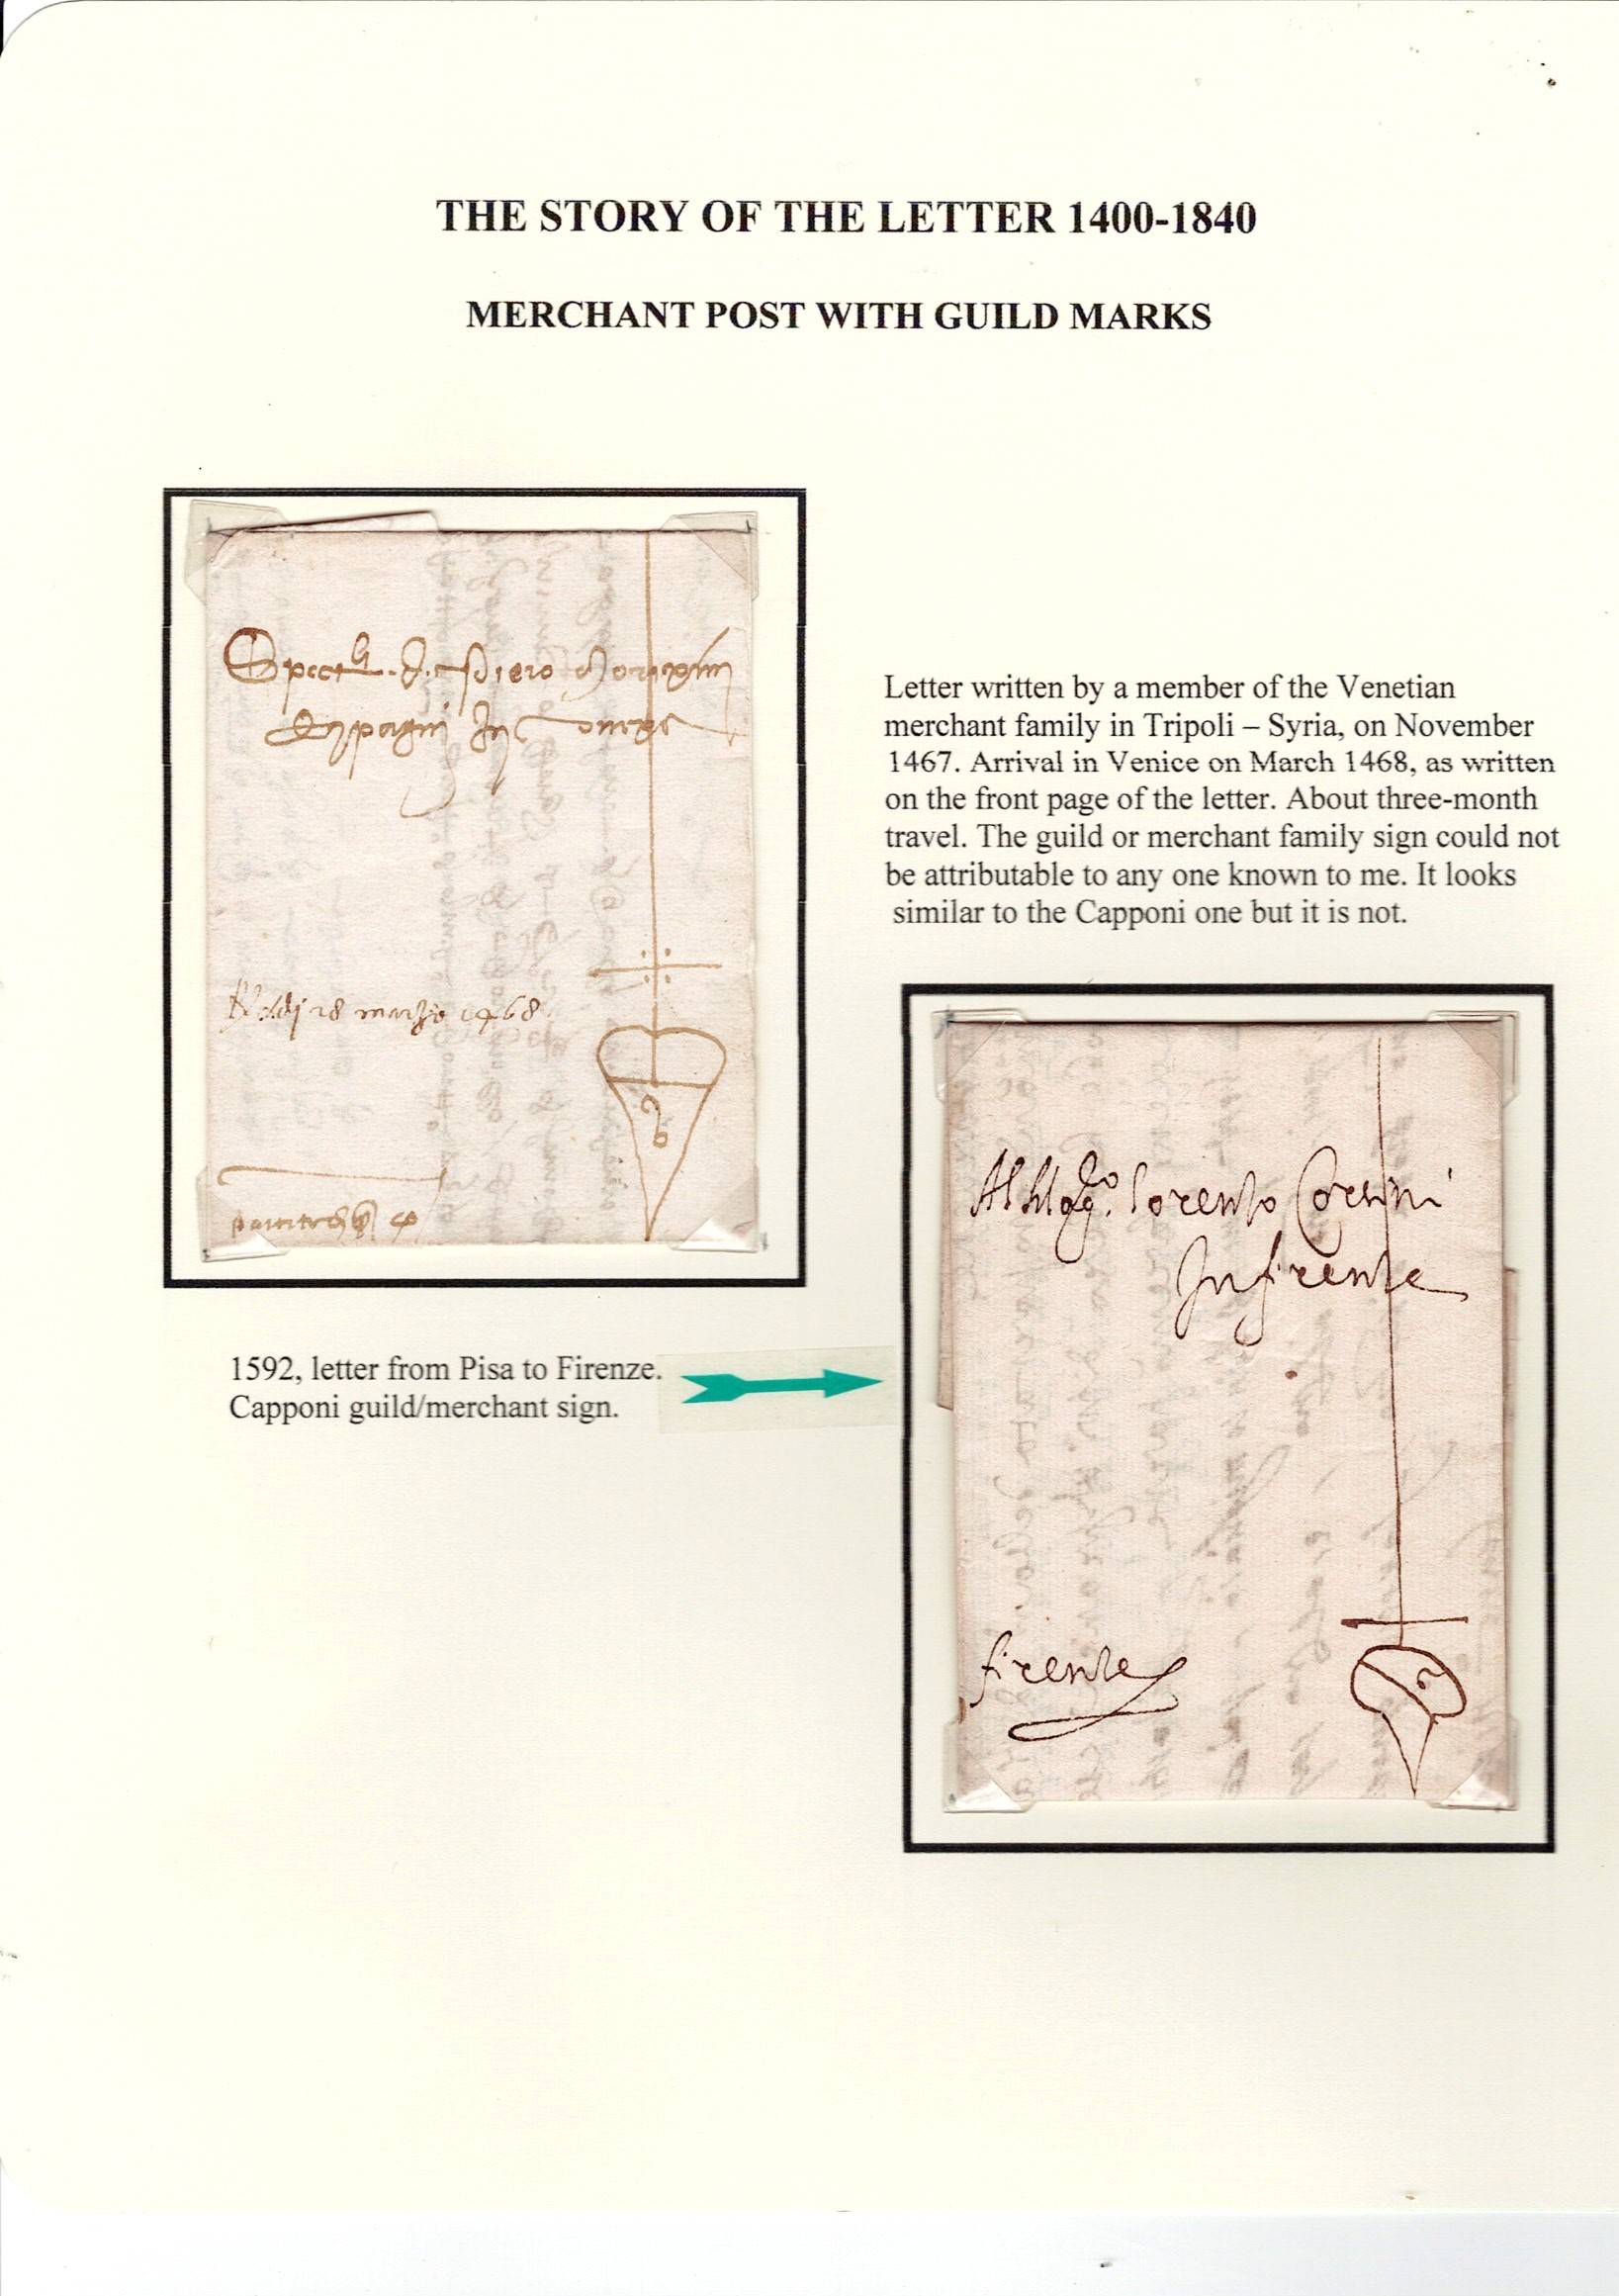 THE STORY OF THE LETTER 1400-1840
MERCHANT POST WITH GUILD MARKS
piero
marzo 1468
Letter written by a member of the Venetian
merchant family in Tripoli – Syria, on November
1467. Arrival in Venice on March 1468, as written
on the front page of the letter. About three-month
travel. The guild or merchant family sign could not
be attributable to any one known to me. It looks
similar to the Capponi one but it is not.
1592, letter from Pisa to Firenze.
Capponi guild/merchant sign.
Al Mag.co lorenzo Corsini
In firenze
firenze